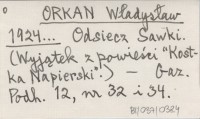 ORKAN Władysław
1924... Odsiecz Sawki.
(Wyjątek z powieści "Kost-
ka Napierski".) — Gaz.
Podh. 12, nr 32 i 34.